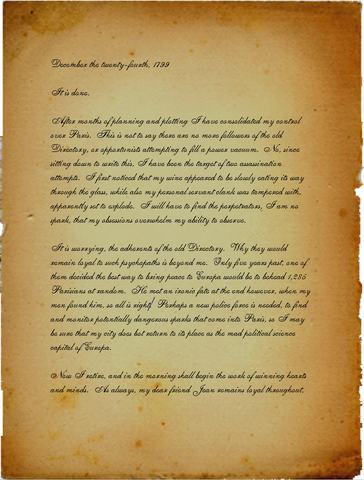 December the twenty-fourth, 1799
It is done.
After months of planning and plotting I have consolidated my control
over Paris. This is not to say there are no more followers of the old
Directory, or opportunists attempting to fill a power vacuum. No, since
sitting down to write this, I have been the target of two assasination
attempts. I first noticed that my wine appeared to be slowly eating its way
through the glass, while also my personal servant clank was tampered with,
apparently set to explode. I will have to find the perpetrators, I am no
spark, that my obsessions overwhelm my ability to observe.
It is worrying, the adherents of the old Directory. Why they would
remain loyal to such psychopaths is beyond me. Only five years past, one of
them decided the best way to bring peace to Europa would be to behead 1,285
Parisians at random. He met an ironic fate at the end however, when my
men found him, so all is right. Perhaps a new police force is needed, to find
and monitor potentially dangerous sparks that come into Paris, so I may
be sure that my city does not return to its place as the mad political science
capital of Europa.
Now I retire, and in the morning shall begin the work of winning hearts
and minds. As always, my dear friend Jean remains loyal throughout,